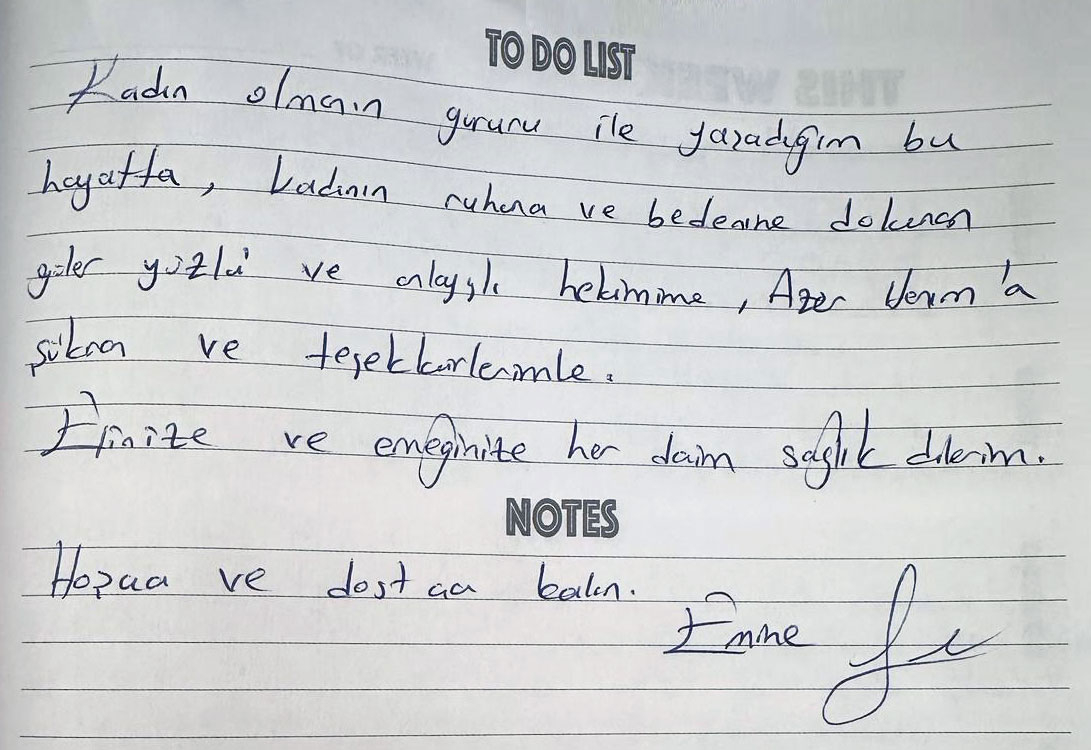 TO DO LIST
Kadın olmanın gururu ile yaşadığım bu
hayatta, kadının ruhuna ve bedenine dokunan
güler yüzlü ve anlayışlı hekimime, Azer
şükran ve teşekkürlerimle.
Elinize ve emeğinize her daim sağlık dilerim.
NOTES
Hoşça ve dostça kalın.
Emine